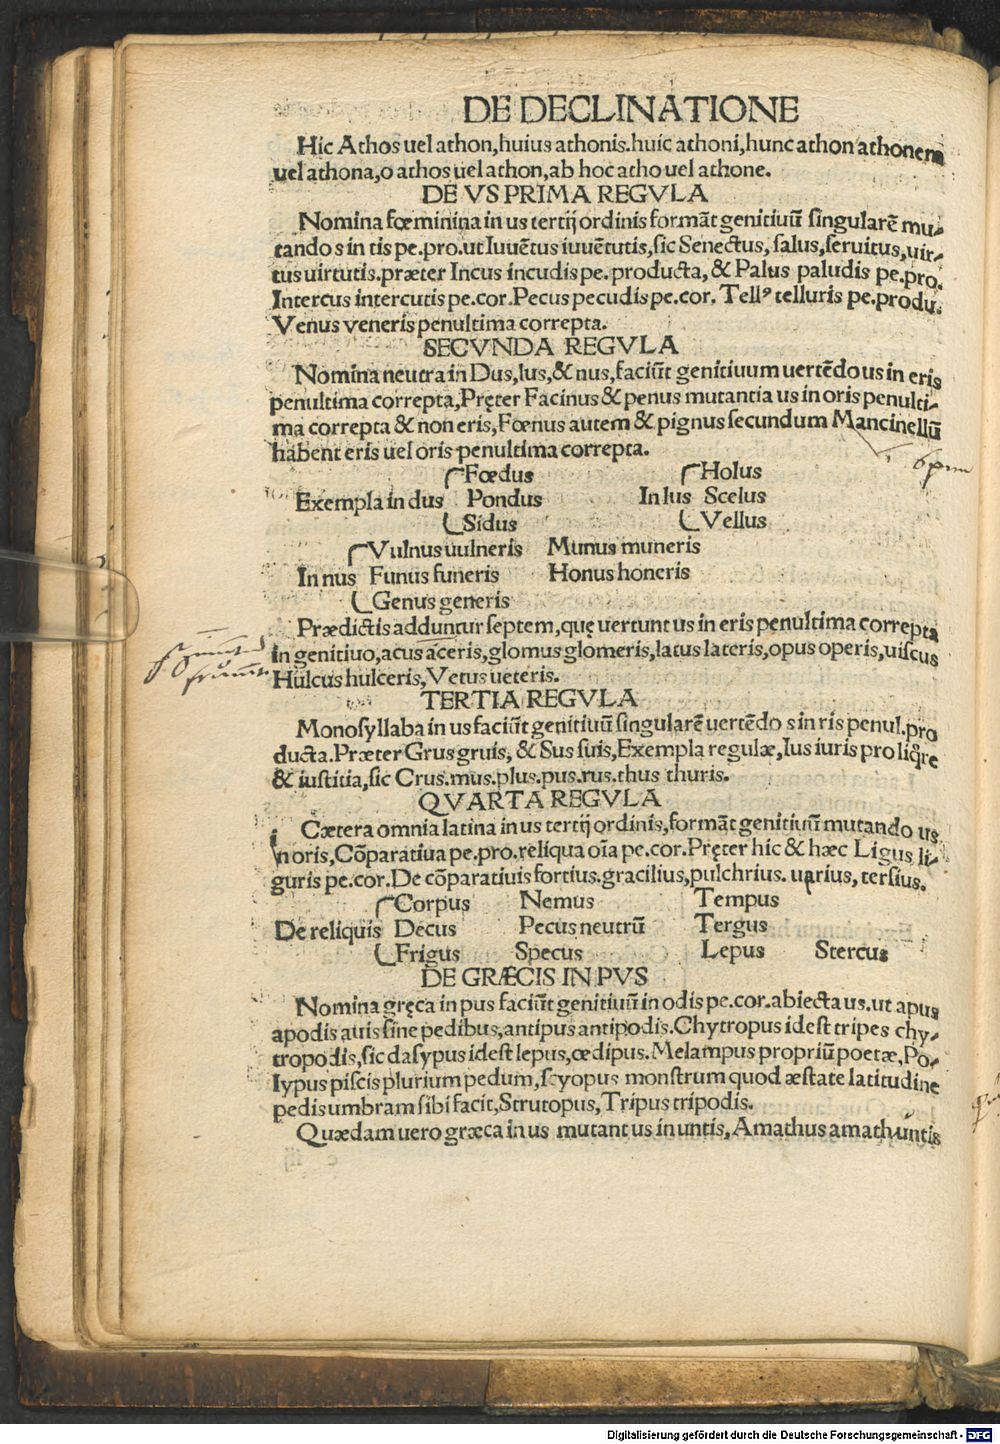 DE DECLINATIONE
Hic Athos uel athon,huius athonis.huic athoni,hunc athon athonem
uel athona,o athos uel athon,ab hoc atho uel athone.
DE VS PRIMA REGVLA
Nomina fœminina in us tertij ordinis formāt genitiuū singularē mu-
tando s in tis pe.pro.ut Iuuētus iuuētutis,sic Senectus, salus,seruitus,uir-
tus uirtutis.præter Incus incudis pe. producta, & Palus paludis pe.pro.
Intercus intercutis pe.cor.Pecus pecudis pe.cor. Tellꝰ telluris pe.produ.
Venus veneris penultima correpta.
SECVNDA REGVLA
Nomina neutra in Dus,lus,& nus,faciūt genitiuum uertēdo us in eris
penultima correpta,Pręter Facinus & penus mutantia us in oris penulti-
ma correpta & non eris,Fœnus autem & pignus secundum Mancinellū
habent eris uel oris penultima correpta.
Fœdus Holus
Exempla in dus Pondus In lus Scelus
Sidus Vellus
Vulnus uulneris Munus muneris
In nus Funus funeris Honus honeris
Genus generis
Prædictis adduntur septem,quę uertunt us in eris penultima correpta
in genitiuo,acus aceris,glomus glomeris,latus lateris,opus operis,uiscus
Hulcus hulceris,Vetus ueteris.
TERTIA REGVLA
Monosyllaba in us faciūt genitiuū singularē uertēdo s in ris penul.pro
ducta.Præter Grus gruis, & Sus suis,Exempla regulæ,Ius iuris pro liq̄re
& iustitia,sic Crus.mus.plus.pus.rus.thus thuris.
QVARTA REGVLA
Cætera omnia latina in us tertij ordinis,formāt genitiuū mutando us
in oris,Cōparatiua pe.pro.reliqua oīa pe.cor.Pręter hic & hæc Ligus li-
guris pe.cor.De cōparatiuis fortius.gracilius,pulchrius. uarius, tersius.
Corpus Nemus Tempus
De reliquis Decus Pecus neutrū Tergus
Frigus Specus Lepus Stercus
DE GRÆCIS IN PVS
Nomina gręca in pus faciūt genitiuū in odis pe.cor.abiecta us.ut apus
apodis auis sine pedibus,antipus antipodis.Chytropus idest tripes chy-
tropodis,sic dasypus idest lepus,œdipus.Melampus propriū poetæ,Po-
lypus piscis plurium pedum,scyopus monstrum quod æstate latitudine
pedis umbram sibi facit,Strutopus,Tripus tripodis.
Quædam uero græca in us mutant us in untis, Amathus amathuntis
Digitalisierung gefördert durch die Deutsche Forschungsgemeinschaft - DFG